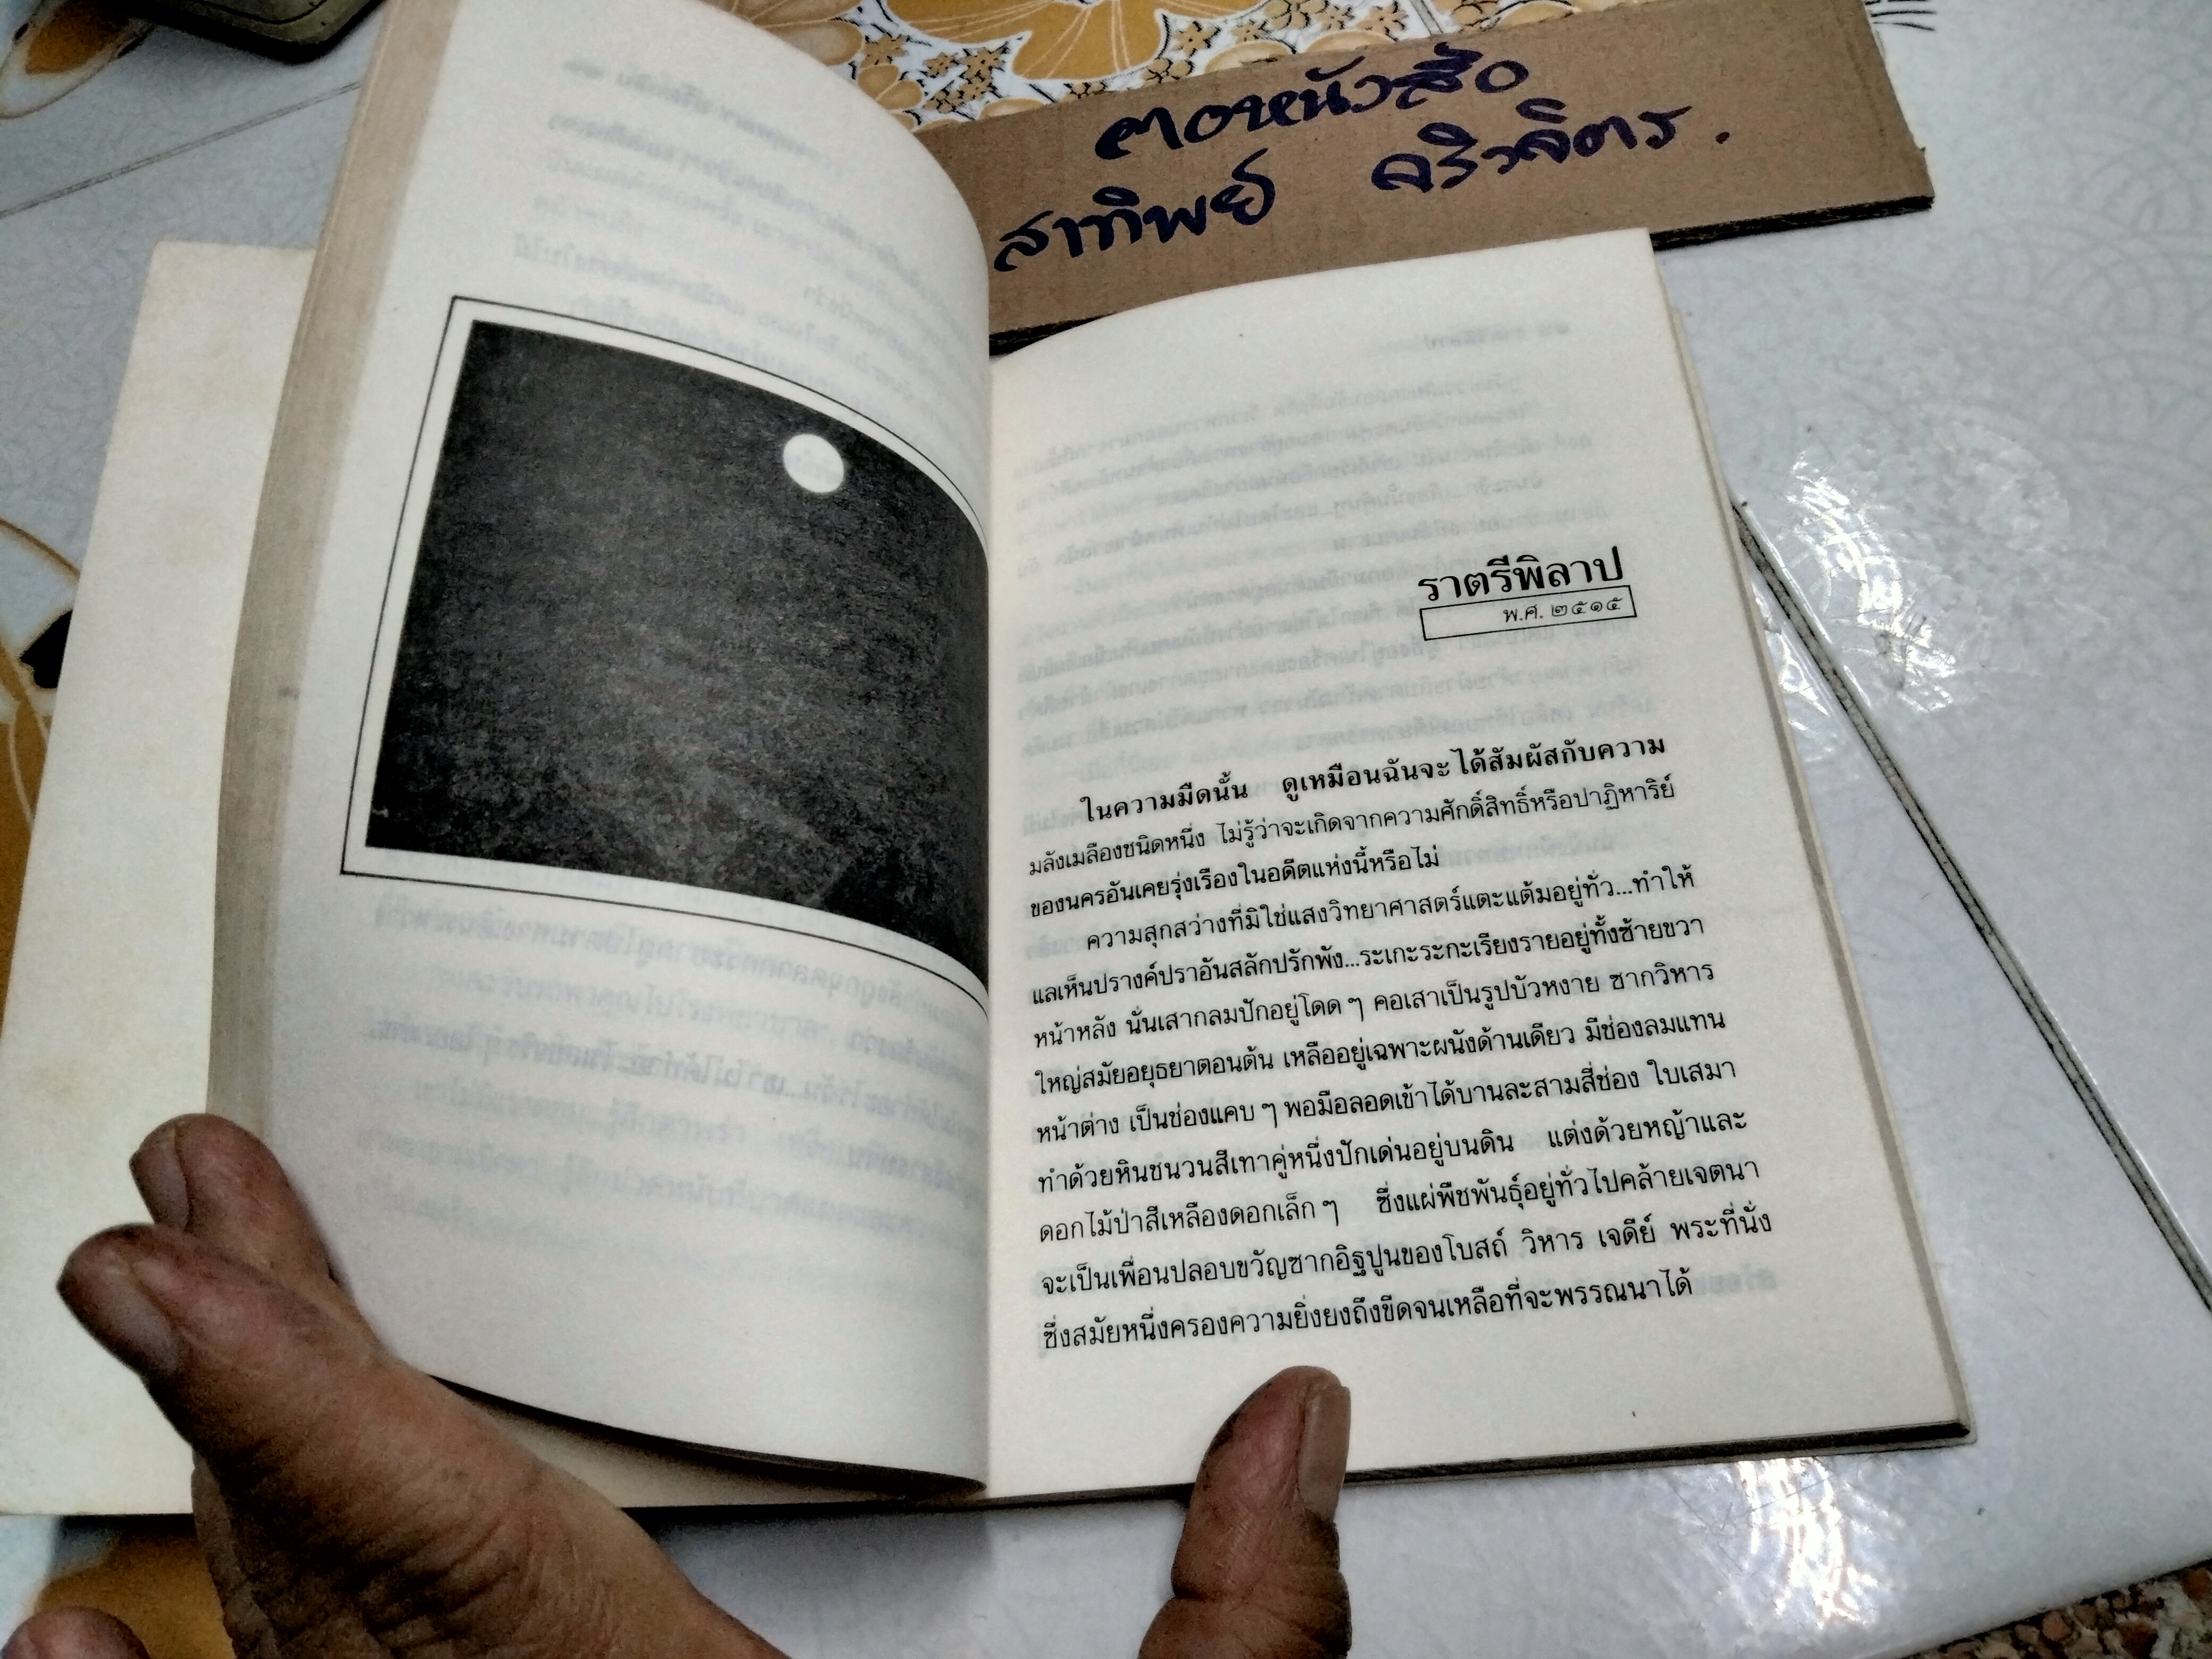 สาทิพย์
ราตรีพิลาป
พ.ศ. ๒๕๑๕
ในความมืดนั้น ดูเหมือนฉันจะได้สัมผัสกับความ
มลังเมลืองชนิดหนึ่ง ไม่รู้ว่าจะเกิดจากความศักดิ์สิทธิ์หรือปาฏิหาริย์
ของนครอันเคยรุ่งเรืองในอดีตแห่งนี้หรือไม่
ความสุกสว่างที่มิใช่แสงวิทยาศาสตร์แตะแต้มอยู่ทั่ว...ทำให้
แลเห็นปรางค์ปราอันสลักปรักพัง...ระเกะระกะเรียงรายอยู่ทั้งซ้ายขวา
หน้าหลัง นั่นเสากลมปักอยู่โดด ๆ คอเสาเป็นรูปบัวหงาย ซากวิหาร
ใหญ่สมัยอยุธยาตอนต้น เหลืออยู่เฉพาะผนังด้านเดียว มีช่องลมแทน
หน้าต่าง เป็นช่องแคบ ๆ พอมือลอดเข้าได้บานละสามสี่ช่อง ใบเสมา
ทำด้วยหินชนวนสีเทาคู่หนึ่งปักเด่นอยู่บนดิน แต่งด้วยหญ้าและ
ดอกไม้ป่าสีเหลืองดอกเล็ก ๆ ซึ่งแผ่พืชพันธุ์อยู่ทั่วไปคล้ายเจตนา
จะเป็นเพื่อนปลอบขวัญซากอิฐปูนของโบสถ์ วิหาร เจดีย์ พระที่นั่ง
ซึ่งสมัยหนึ่งครองความยิ่งยงถึงขีดจนเหลือที่จะพรรณนาได้